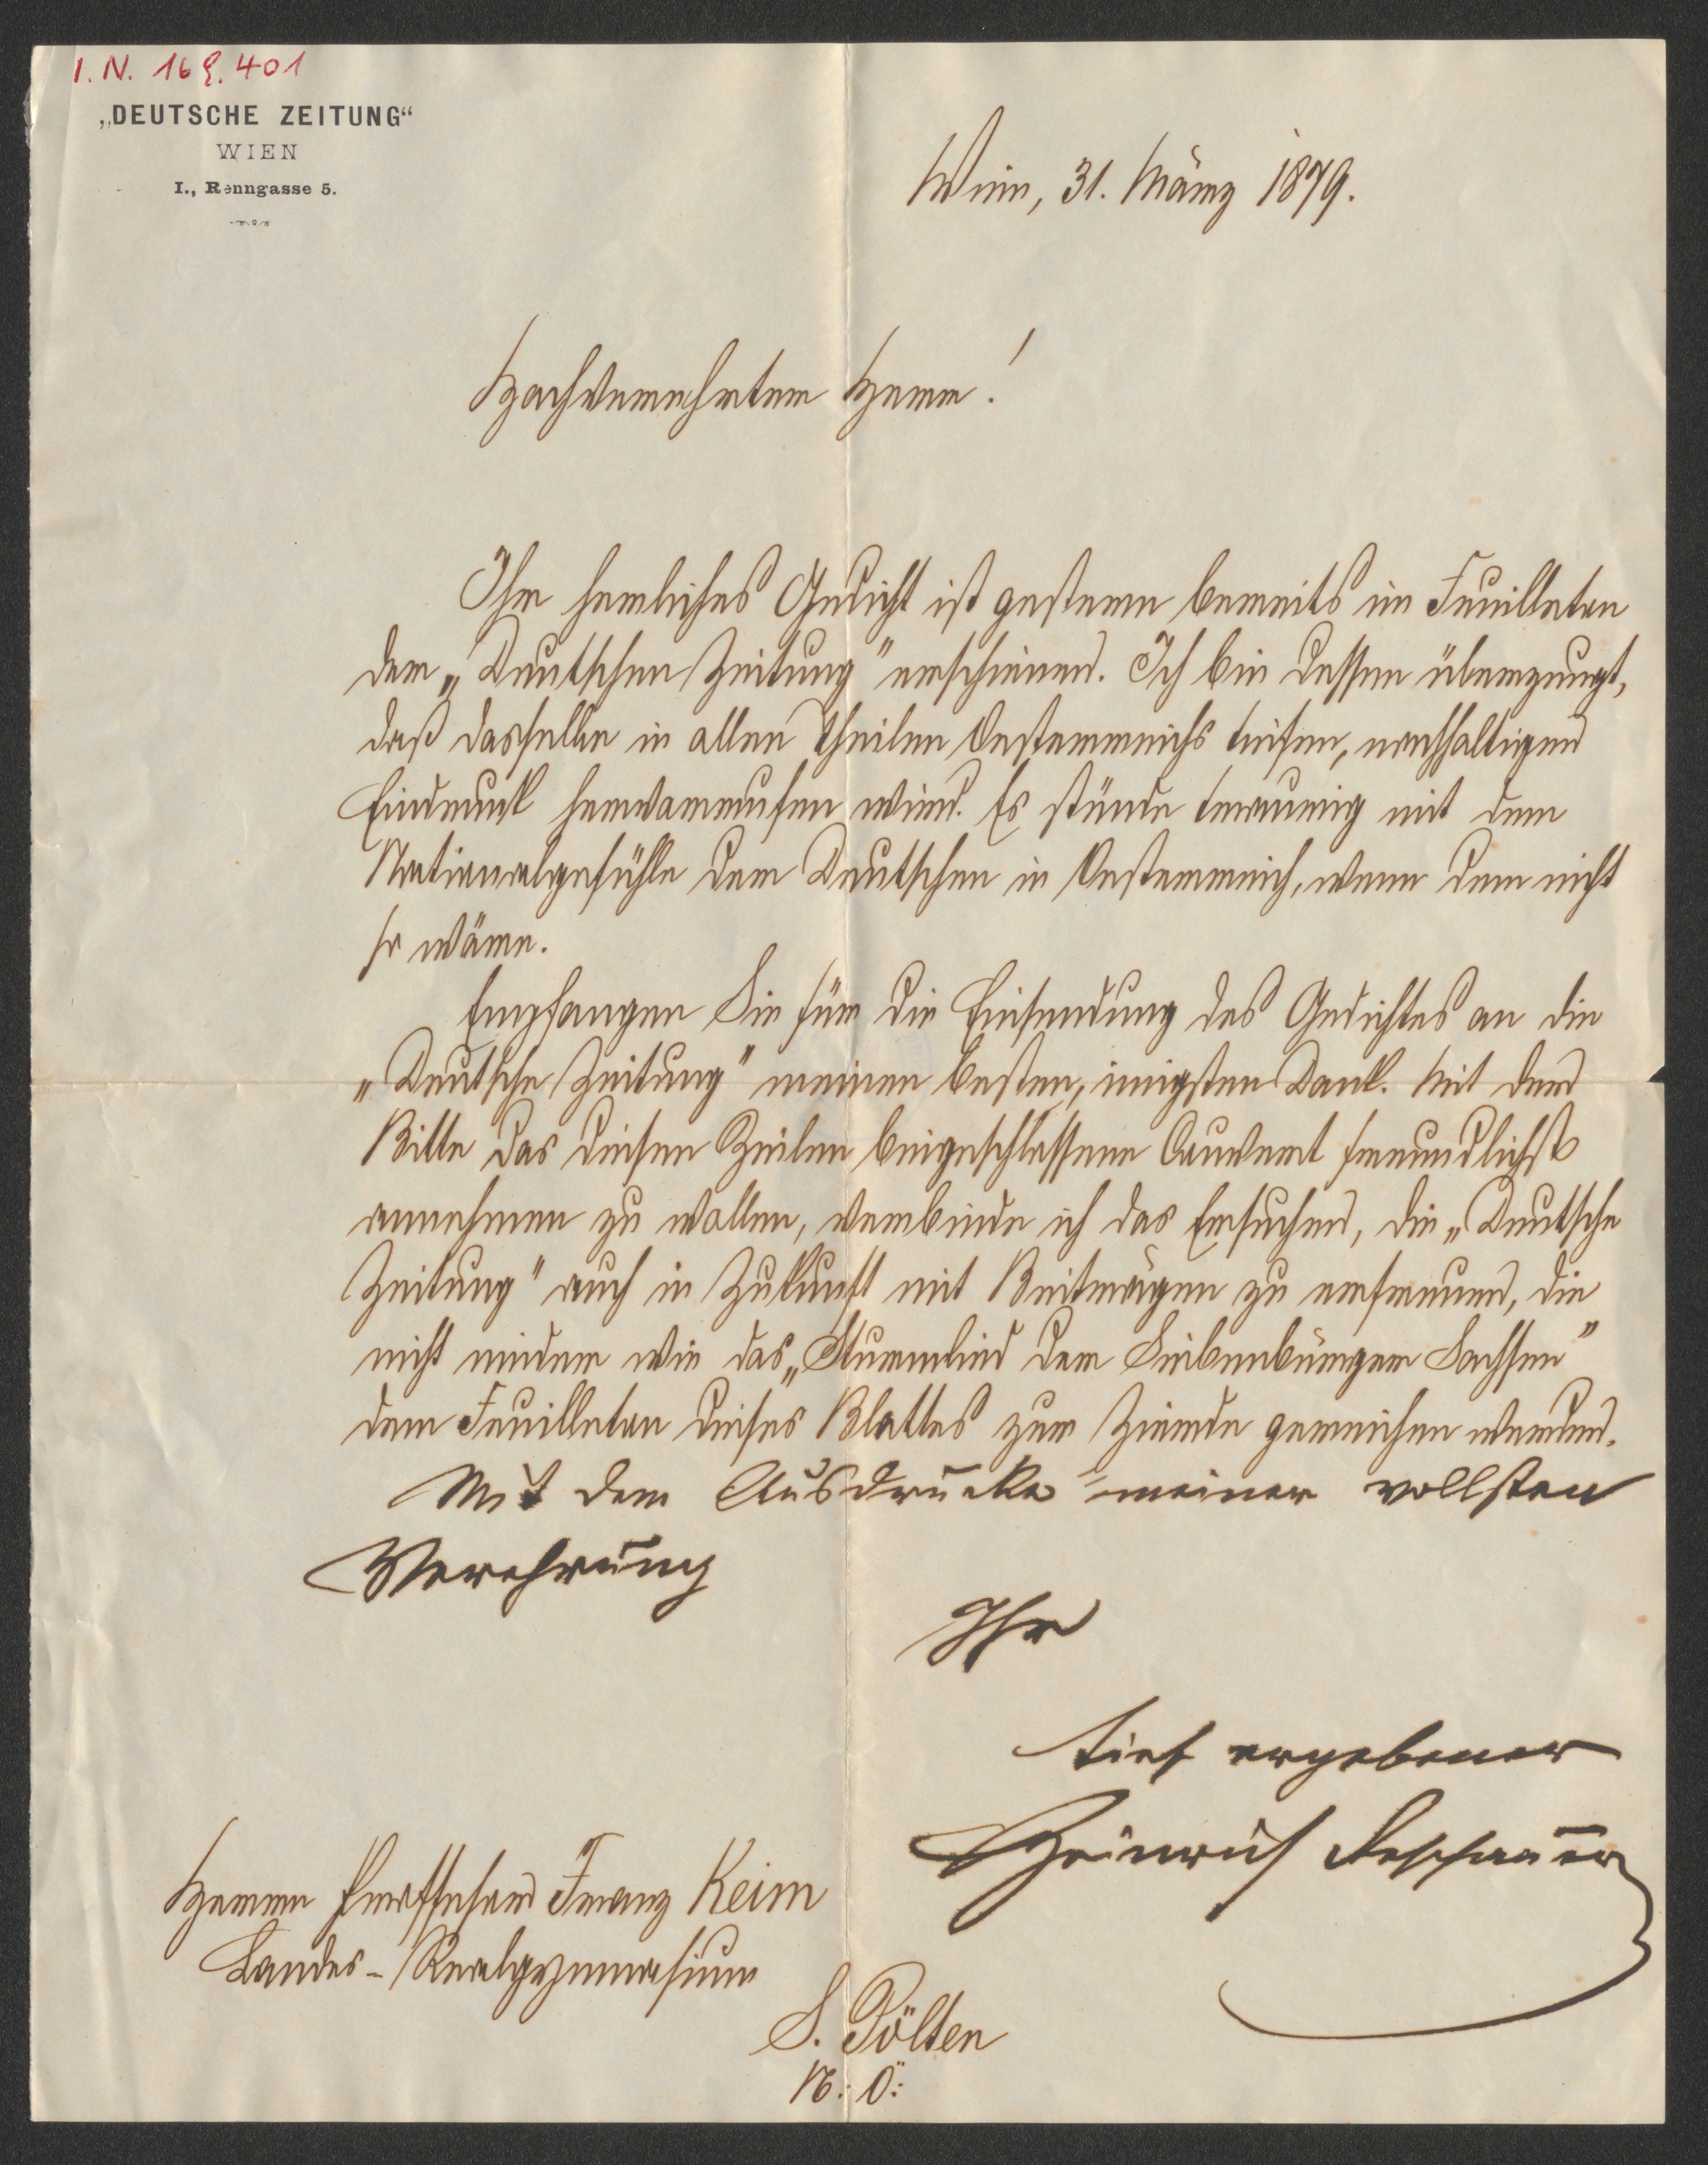 I. N. 169.401
„DEUTSCHE ZEITUNG“
WIEN
I., Renngasse 5.
Wien, 31. März 1879.
Hochverehrter Herr!
Ihr herrliches Gedicht ist gestern bereits im Feuilleton
der „Deutschen Zeitung" erschienen. Ich bin dessen überzeugt,
daß dasselbe in allen Theilen Oesterreichs tiefen, nachhaltigen
Eindruck hervorrufen wird. Es stünde traurig mit dem
Nationalgefühle der Deutschen in Oesterreich, wenn dem nicht
so wäre.
Empfangen Sie für die Einsendung des Gedichtes an die
„Deutsche Zeitung" meinen besten, innigsten Dank. Mit der
Bitte das diesen Zeilen beigeschlossene Couvert freundlichst
annehmen zu wollen, verbinde ich das Ersuchen, die „Deutsche
Zeitung" auch in Zukunft mit Beiträgen zu erfreuen, die
nicht minder wie das „Sturmlied der Siebenbürger Sachsen"
dem Feuilleton dieses Blattes zur Zierde gereichen werden.
Mit dem Ausdrucke meiner vollsten
Verehrung
Ihr
tief ergebener
Heinrich Reschauer
Herrn Professor Franz Keim
Landes-Realgymnasium
S. Pölten
N: Ö: